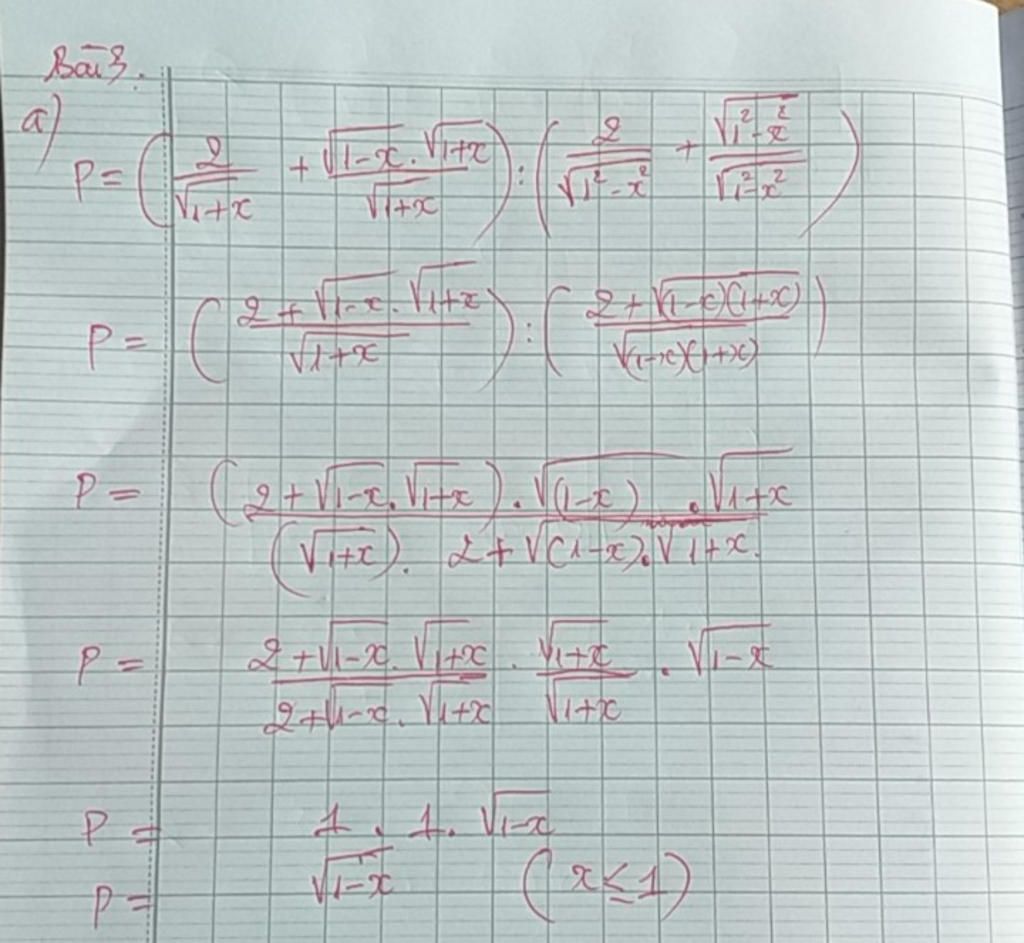 Bài 3.
a)
P = ( 2/√(1+x) + √(1-x) . √(1+x)/√(1+x) ) : ( 2/√(1²-x²) + √(1²-x²)/√(1²-x²) )
P = ( (2 + √(1-x) . √(1+x))/√(1+x) ) : ( (2 + √((1-x)(1+x)))/√((1-x)(1+x)) )
P = (2 + √(1-x) . √(1+x)) . √(1-x) . √(1+x) / (√(1+x)) . 2 + √(1-x) . √(1+x) .
P = (2 + √(1-x) . √(1+x))/(2 + √(1-x) . √(1+x)) . √(1+x)/√(1+x) . √(1-x)
P = 1 . 1 . √(1-x)
P = √(1-x) (x ≤ 1)